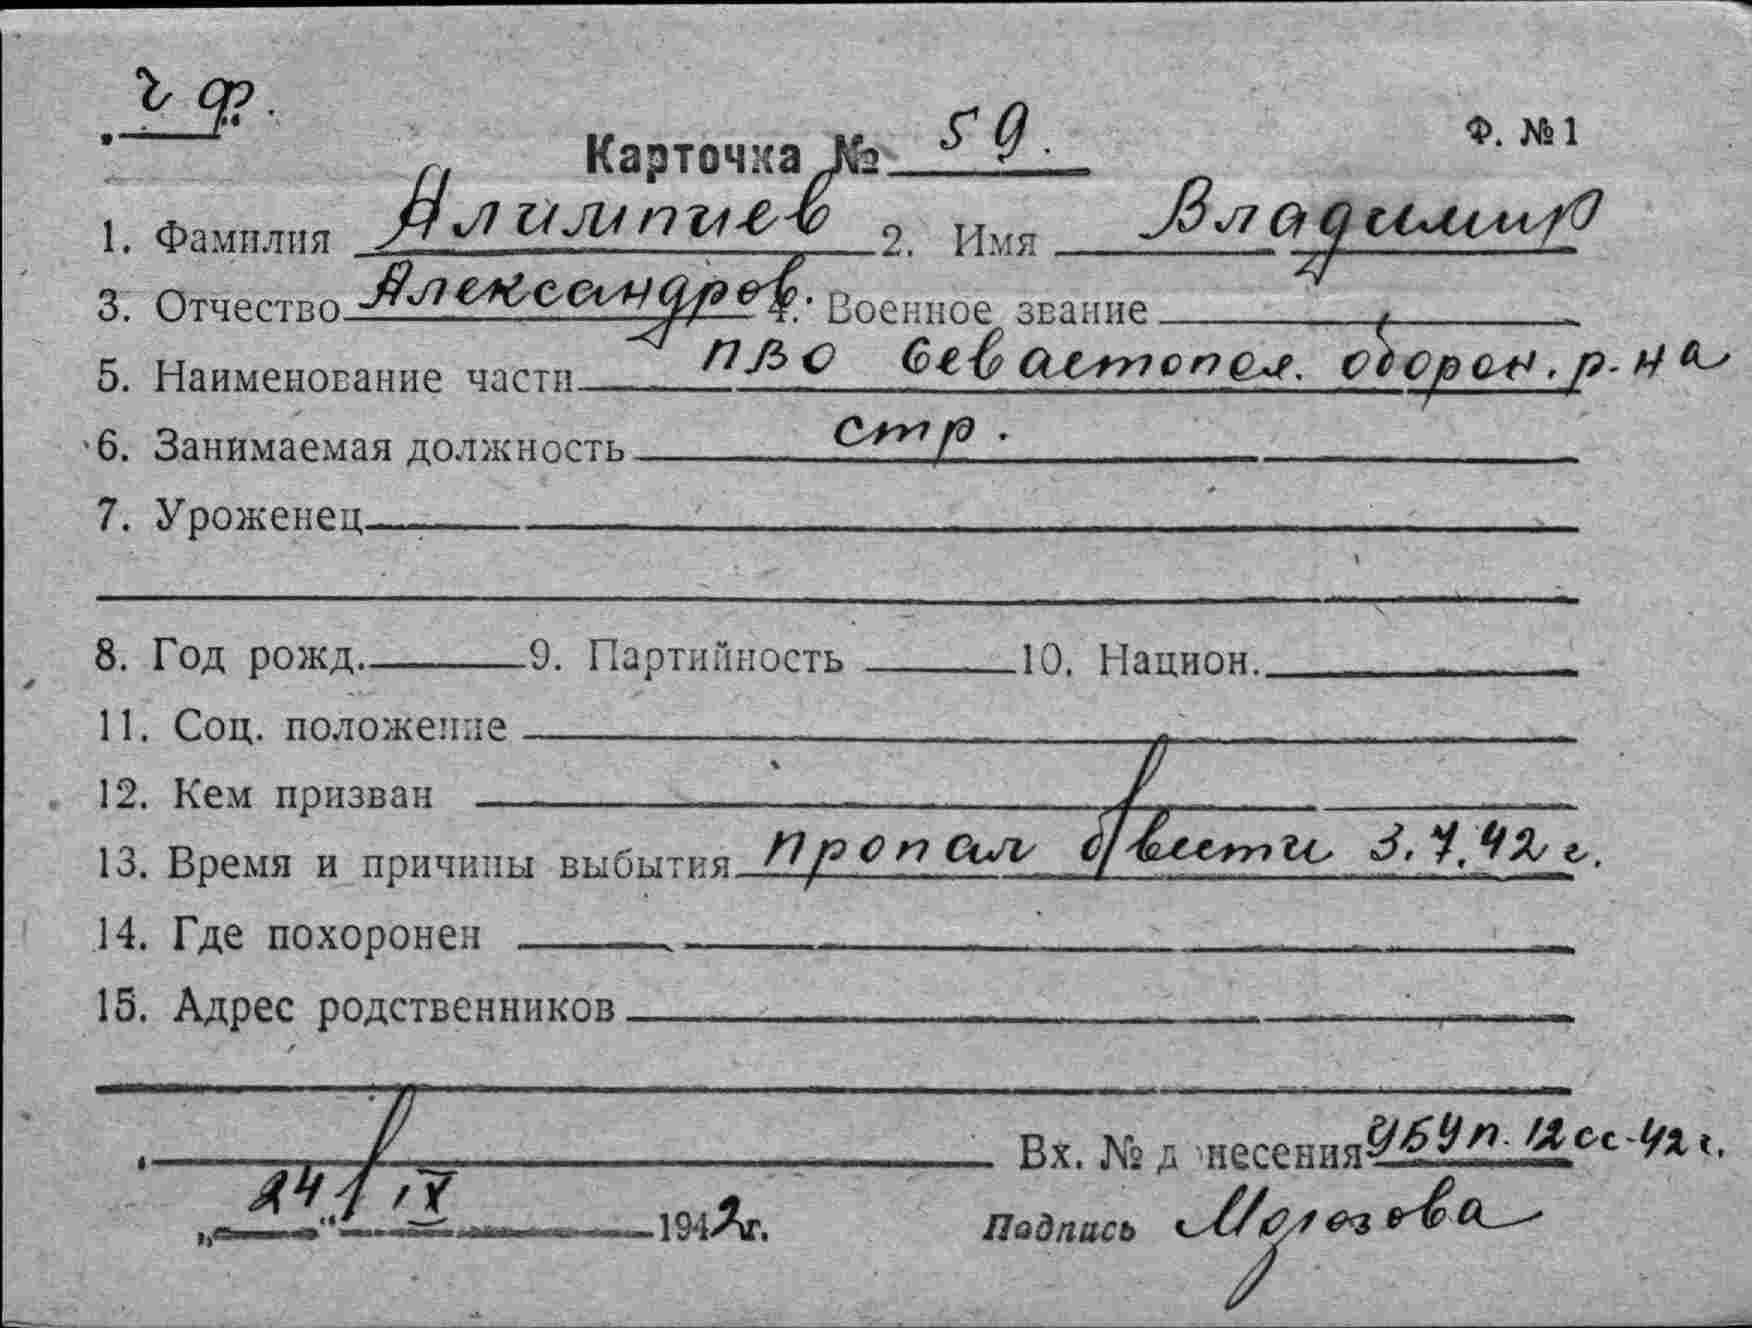 ч ф.
Карточка № 59.
Ф. №1
1. Фамилия Алимпиев 2. Имя Владимир
3. Отчество Александров. 4. Военное звание
5. Наименование части ПВО Севастопол. оборон. р-на
6. Занимаемая должность стр.
7. Уроженец
8. Год рожд. 9. Партийность 10. Национ.
11. Соц. положение
12. Кем призван
13. Время и причины выбытия Пропал б/вести 3.7.42 г.
14. Где похоронен
15. Адрес родственников
Вх. № донесения УБУ п. 12сс-42 г.
„24“ / IX 1942г.
Подпись Морозова